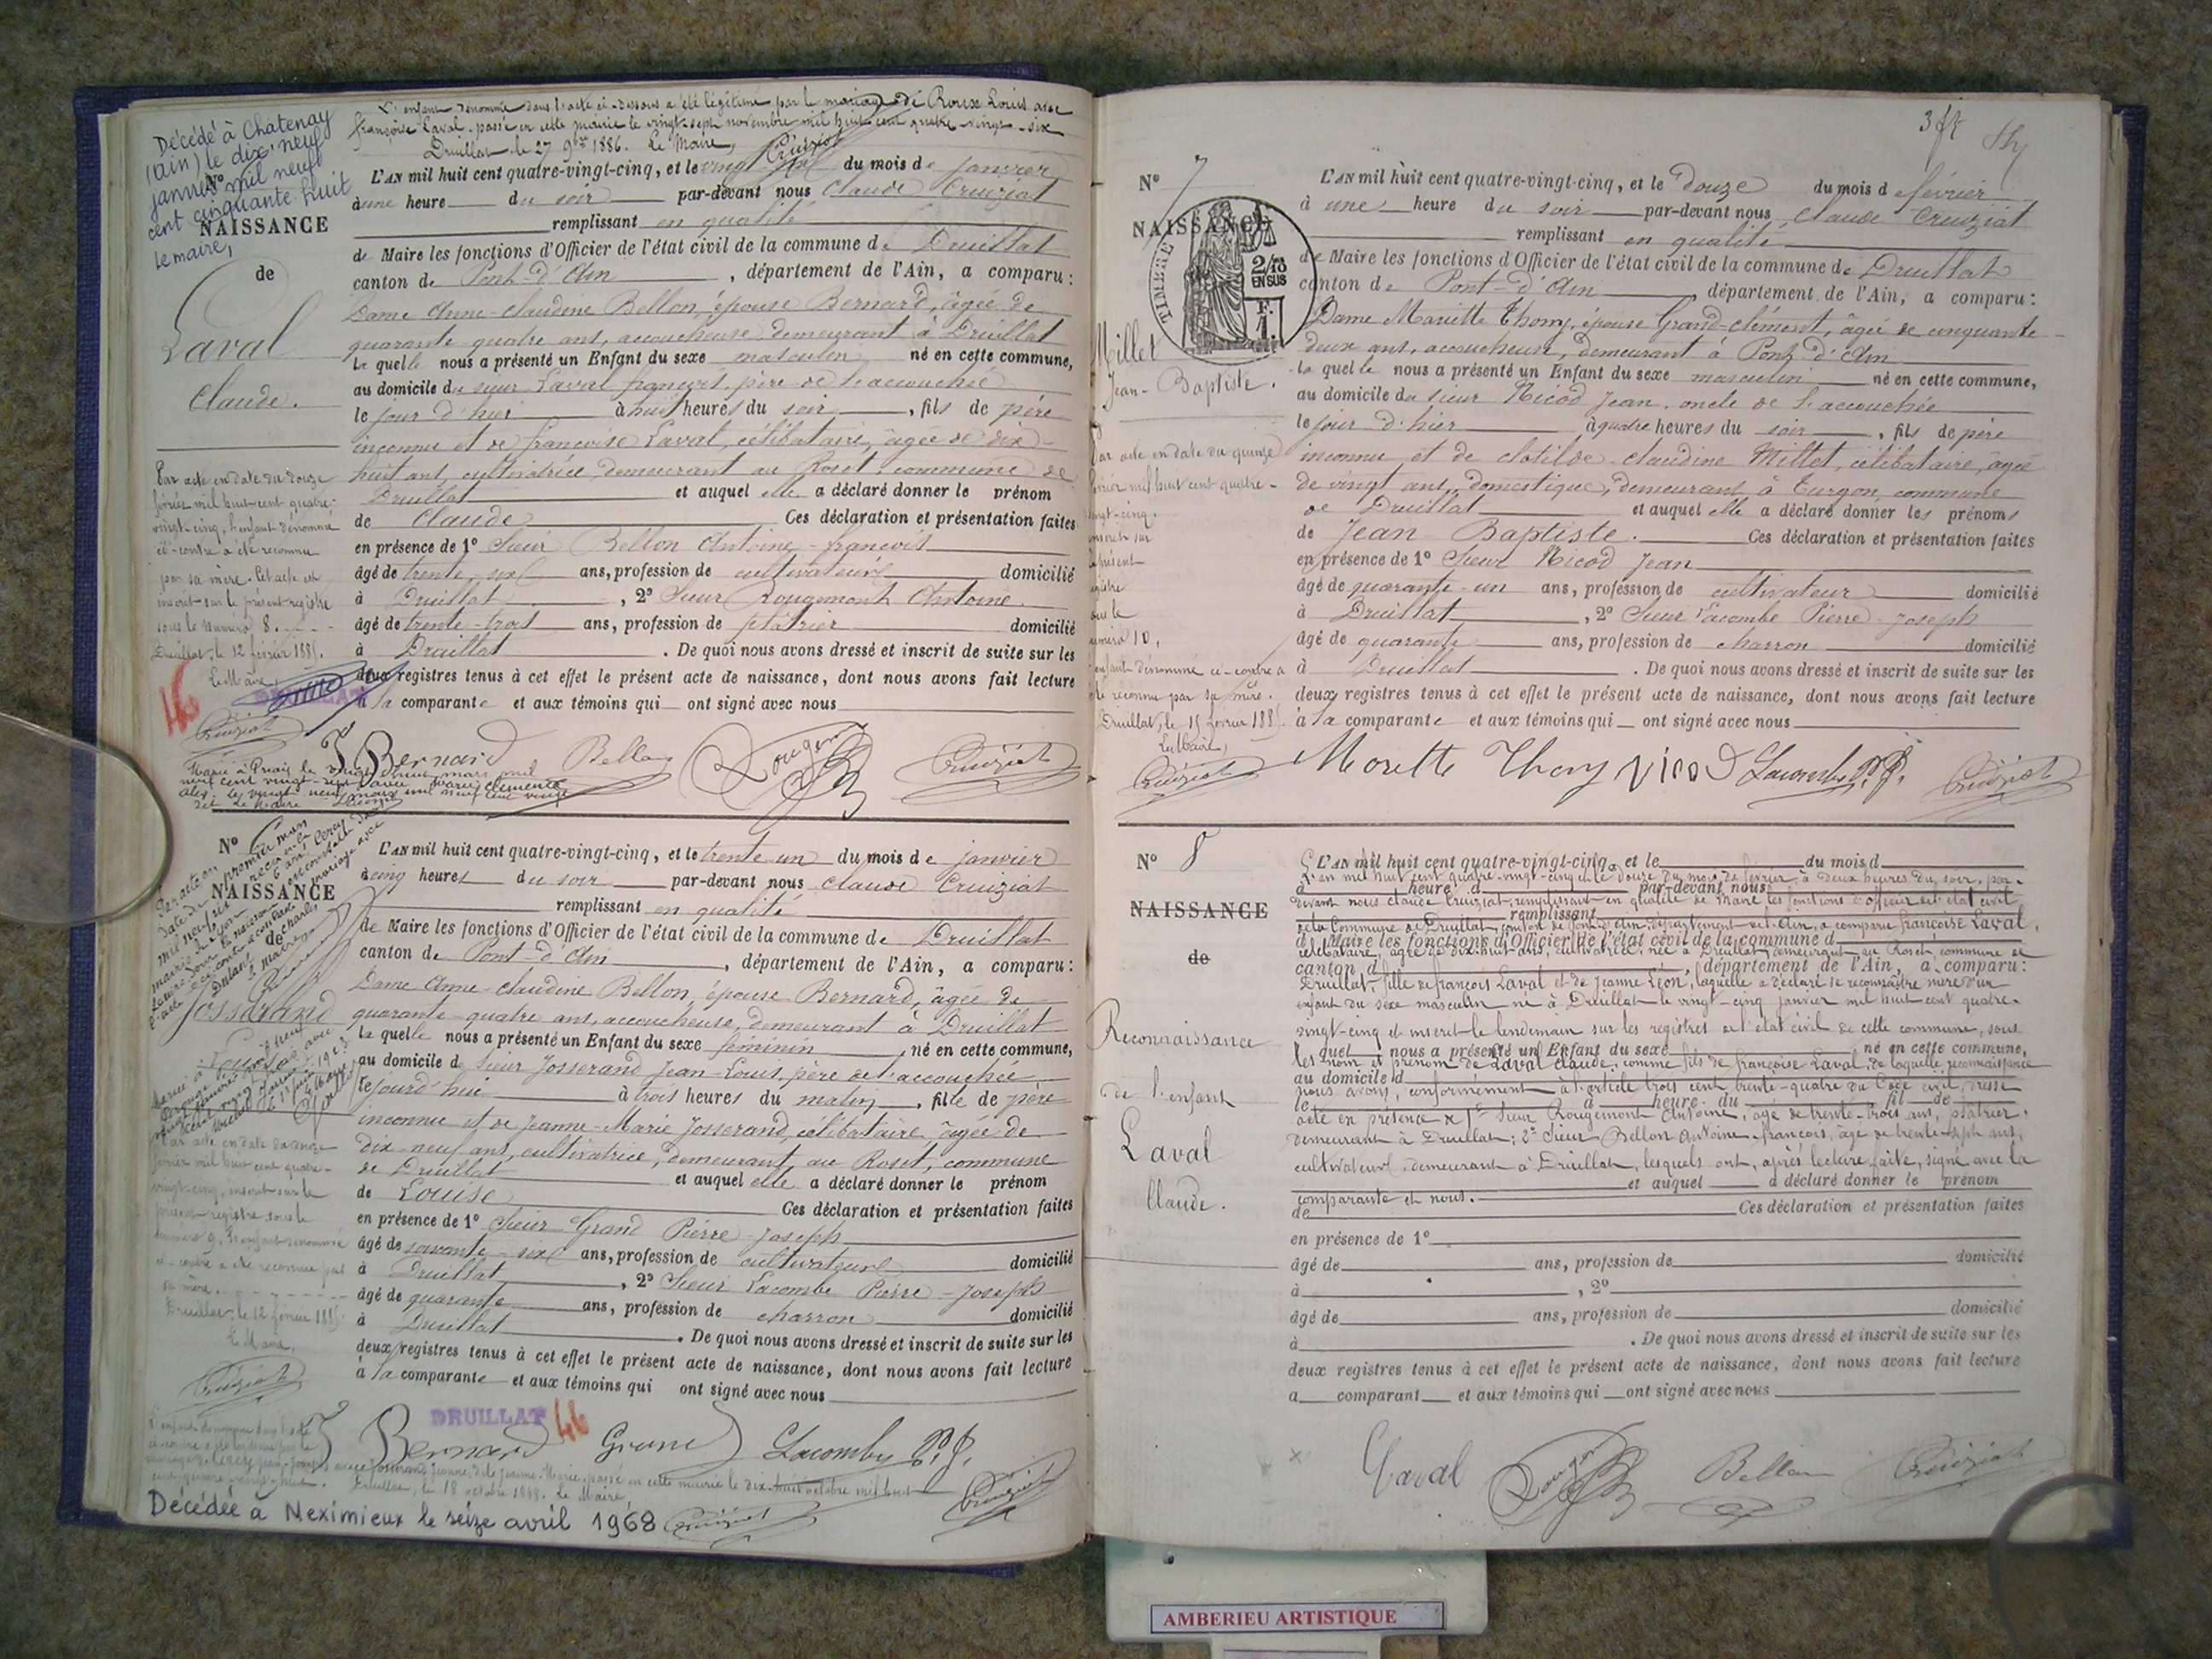 L'enfant dénommé dans l'acte ci-dessous a été légitimé par le mariage de Roux Louis avec
françoise Laval, passé en cette mairie le vingt-sept novembre mil huit cent quatre-vingt-six
Druillat le 27 9bre 1886. Le Maire, Cruiziat
Décédé à Chatenay
(Ain) le dix-neuf
janvier mil neuf
cent cinquante huit
Le maire,
N°
NAISSANCE
de
Laval
Claude.
Par acte en date du douze
février mil huit cent quatre-
vingt-cinq, l'enfant dénommé
ci-contre a été reconnu
par sa mère. Cet acte est
inscrit sur le présent registre
sous le numéro 8.
Druillat, le 12 février 1885.
Le Maire,
Cruiziat
16
DRUILLAT
L'AN mil huit cent quatre-vingt-cinq, et le vingt six du mois de janvier
à une heure du soir par-devant nous Claude Cruiziat
remplissant en qualité
de Maire les fonctions d'Officier de l'état civil de la commune de Druillat
canton de Pont-d'Ain, département de l'Ain, a comparu:
Dame Anne-Claudine Bellon, épouse Bernard, âgée de
quarante quatre ans, accoucheuse, demeurant à Druillat
la quelle nous a présenté un Enfant du sexe masculin né en cette commune,
au domicile du sieur Laval françois, père de l'accouchée
le jour d'hier à huit heures du soir, fils de père
inconnu et de françoise Laval, célibataire, âgée de dix-
huit ans, cultivatrice, demeurant au Roset, commune de
Druillat et auquel elle a déclaré donner le prénom
de Claude Ces déclaration et présentation faites
en présence de 1° Sieur Bellon Antoine-françois
âgé de trente six ans, profession de cultivateur domicilié
à Druillat, 2° Sieur Rougemont Antoine
âgé de trente-trois ans, profession de plâtrier domicilié
à Druillat. De quoi nous avons dressé et inscrit de suite sur les
deux registres tenus à cet effet le présent acte de naissance, dont nous avons fait lecture
à la comparante et aux témoins qui ont signé avec nous
Bernard Bellon Rougemont Cruiziat
N° 6
NAISSANCE
de
Josserand
Louise
Par acte en date du douze
février mil huit cent quatre-
vingt-cinq, inscrit sur le
présent registre sous le
numéro 9, l'enfant dénommée
ci-contre a été reconnue par
sa mère.
Druillat, le 12 février 1885.
Le Maire,
Cruiziat
L'AN mil huit cent quatre-vingt-cinq, et le trente un du mois de janvier
à cinq heures du soir par-devant nous Claude Cruiziat
remplissant en qualité
de Maire les fonctions d'Officier de l'état civil de la commune de Druillat
canton de Pont-d'Ain, département de l'Ain, a comparu:
Dame Anne-Claudine Bellon, épouse Bernard, âgée de
quarante-quatre ans, accoucheuse, demeurant à Druillat
la quelle nous a présenté un Enfant du sexe féminin, né en cette commune,
au domicile du sieur Josserand Jean-Louis, père de l'accouchée
le jourd'hui à trois heures du matin, fille de père
inconnu et de Jeanne-Marie Josserand, célibataire, âgée de
dix-neuf ans, cultivatrice, demeurant au Roset, commune
de Druillat et auquel elle a déclaré donner le prénom
de Louise Ces déclaration et présentation faites
en présence de 1° Sieur Grand Pierre-Joseph
âgé de soixante-six ans, profession de cultivateur domicilié
à Druillat, 2° Sieur Lacombe Pierre-Joseph
âgé de quarante ans, profession de charron domicilié
à Druillat. De quoi nous avons dressé et inscrit de suite sur les
deux registres tenus à cet effet le présent acte de naissance, dont nous avons fait lecture
à la comparante et aux témoins qui ont signé avec nous
DRUILLAT 46
Bernard Grand Lacombe P.J.
Cruiziat
Décédée à Meximieux le seize avril 1968
Cruiziat
3 ft
N° 7
NAISSANCE
TIMBRE
2/10
EN SUS
F.
1.
Millet
Jean-Baptiste.
Par acte en date du quinze
février mil huit cent quatre-
vingt-cinq,
inscrit sur
le présent
registre
sous le
numéro 10,
l'enfant dénommé ci-contre a
été reconnu par sa mère.
Druillat, le 15 février 1885.
Le Maire,
Cruiziat
L'AN mil huit cent quatre-vingt-cinq, et le douze du mois de février
à une heure du soir par-devant nous Claude Cruiziat
remplissant en qualité
de Maire les fonctions d'Officier de l'état civil de la commune de Druillat
canton de Pont-d'Ain, département de l'Ain, a comparu:
Dame Mariette Thomy, épouse Grand-Clément, âgée de cinquante-
deux ans, accoucheuse, demeurant à Pont-d'Ain
la quelle nous a présenté un Enfant du sexe masculin né en cette commune,
au domicile du sieur Nicod Jean, oncle de l'accouchée
le jour d'hier à quatre heures du soir, fils de père
inconnu et de Clotilde-Claudine Millet, célibataire, âgée
de vingt ans, domestique, demeurant à Turgon, commune
de Druillat et auquel elle a déclaré donner les prénoms
de Jean Baptiste. Ces déclaration et présentation faites
en présence de 1° Sieur Nicod Jean
âgé de quarante-un ans, profession de cultivateur domicilié
à Druillat, 2° Sieur Lacombe Pierre-Joseph
âgé de quarante ans, profession de charron domicilié
à Druillat. De quoi nous avons dressé et inscrit de suite sur les
deux registres tenus à cet effet le présent acte de naissance, dont nous avons fait lecture
à la comparante et aux témoins qui ont signé avec nous
Morette Thomy Nicod Lacombe P.J. Cruiziat
N° 8
NAISSANCE
de
Reconnaissance
de l'enfant
Laval
Claude.
L'AN mil huit cent quatre-vingt-cinq, et le du mois d
L'an mil huit cent quatre-vingt-cinq et le douze du mois de février, à deux heures du soir, par-
à heure d par-devant nous
devant nous Claude Cruiziat, remplissant en qualité de Maire les fonctions d'officier de l'état civil
remplissant
de la commune de Druillat, canton de Pont-d'Ain, département de l'Ain, a comparu françoise Laval,
d Maire les fonctions d'Officier de l'état civil de la commune d
célibataire, âgée de dix-huit ans, cultivatrice, née à Druillat, demeurant au Roset, commune de
canton d, département de l'Ain, a comparu:
Druillat, fille de françois Laval et de Jeanne Léon, laquelle a déclaré se reconnaître mère d'un
enfant du sexe masculin né à Druillat le vingt-cinq janvier mil huit cent quatre-
vingt-cinq et inscrit le lendemain sur les registres de l'état civil de cette commune, sous
les quel nous a présenté un Enfant du sexe né en cette commune,
les nom et prénom de Laval Claude, comme fils de françoise Laval, de laquelle reconnaissance
au domicile d
nous avons, conformément à l'article trois cent trente-quatre du Code civil, dressé
le à heure du fil de
acte en présence de 1° Sieur Rougemont Antoine, âgé de trente-trois ans, plâtrier,
demeurant à Druillat; 2° Sieur Bellon Antoine-françois, âgé de trente-sept ans,
cultivateur, demeurant à Druillat, lesquels ont, après lecture faite, signé avec la
et auquel a déclaré donner le prénom
comparante et nous.
de Ces déclaration et présentation faites
en présence de 1°
âgé de ans, profession de domicilié
à, 2°
âgé de ans, profession de domicilié
à. De quoi nous avons dressé et inscrit de suite sur les
deux registres tenus à cet effet le présent acte de naissance, dont nous avons fait lecture
a comparant et aux témoins qui ont signé avec nous
Laval Rougemont Bellon Cruiziat
AMBERIEU ARTISTIQUE